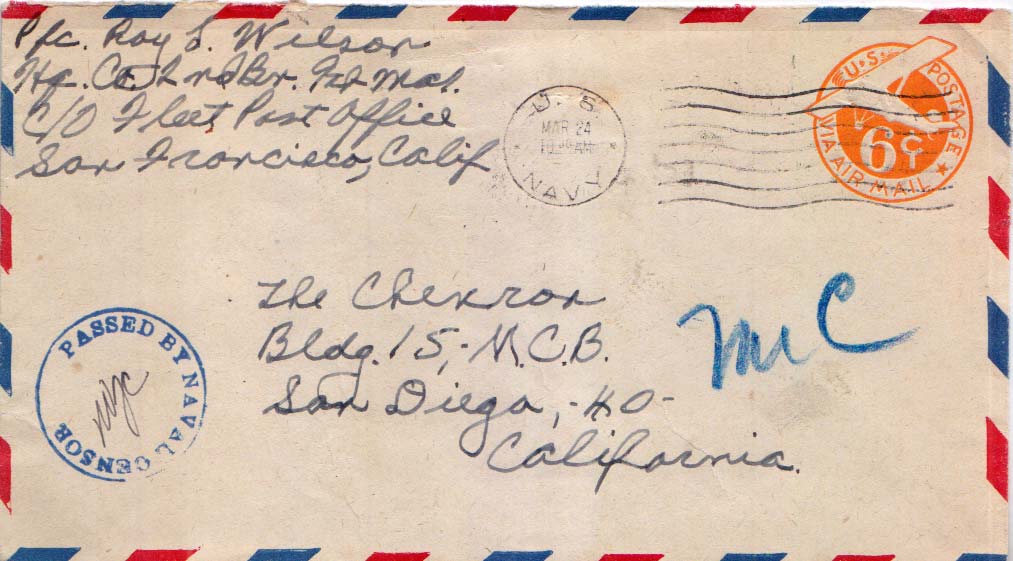 Pfc. Roy L. Wilson
Hq. Co. 2nd Bn. 22d Mar.
C/O Fleet Post Office
San Francisco, Calif
U. S.
MAR 24
10 AM
NAVY
U.S. POSTAGE
6¢
VIA AIR MAIL
The Chevron
Bldg. 15,- M.C.B.
San Diego, -40-
California.
MC
PASSED BY NAVAL CENSOR